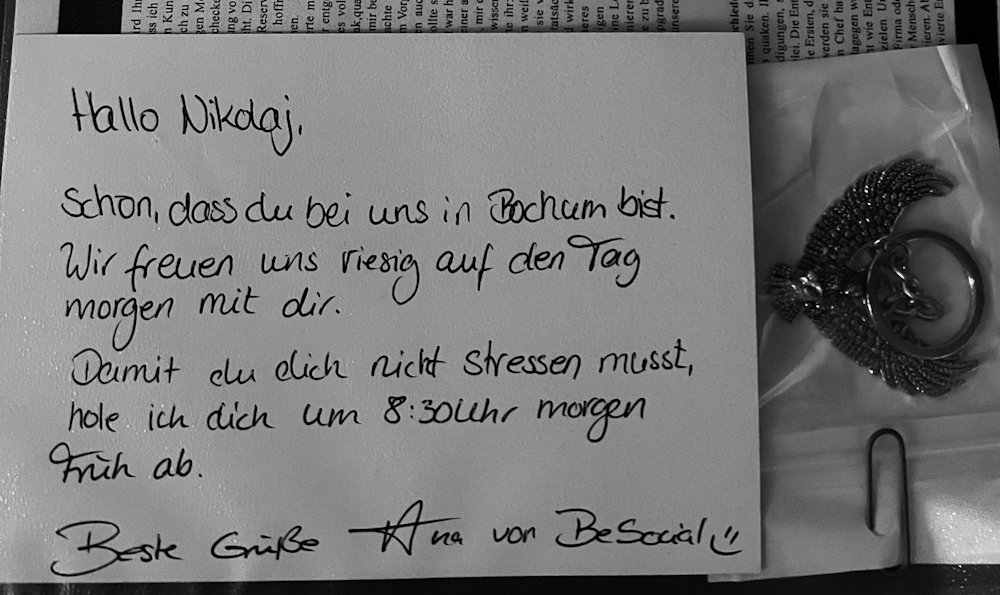 Hallo Nikolaj,
Schön, dass du bei uns in Bochum bist.
Wir freuen uns riesig auf den Tag
morgen mit dir.
Damit du dich nicht stressen musst,
hole ich dich um 8:30 Uhr morgen
früh ab.
Beste Grüße Ana von BeSocial